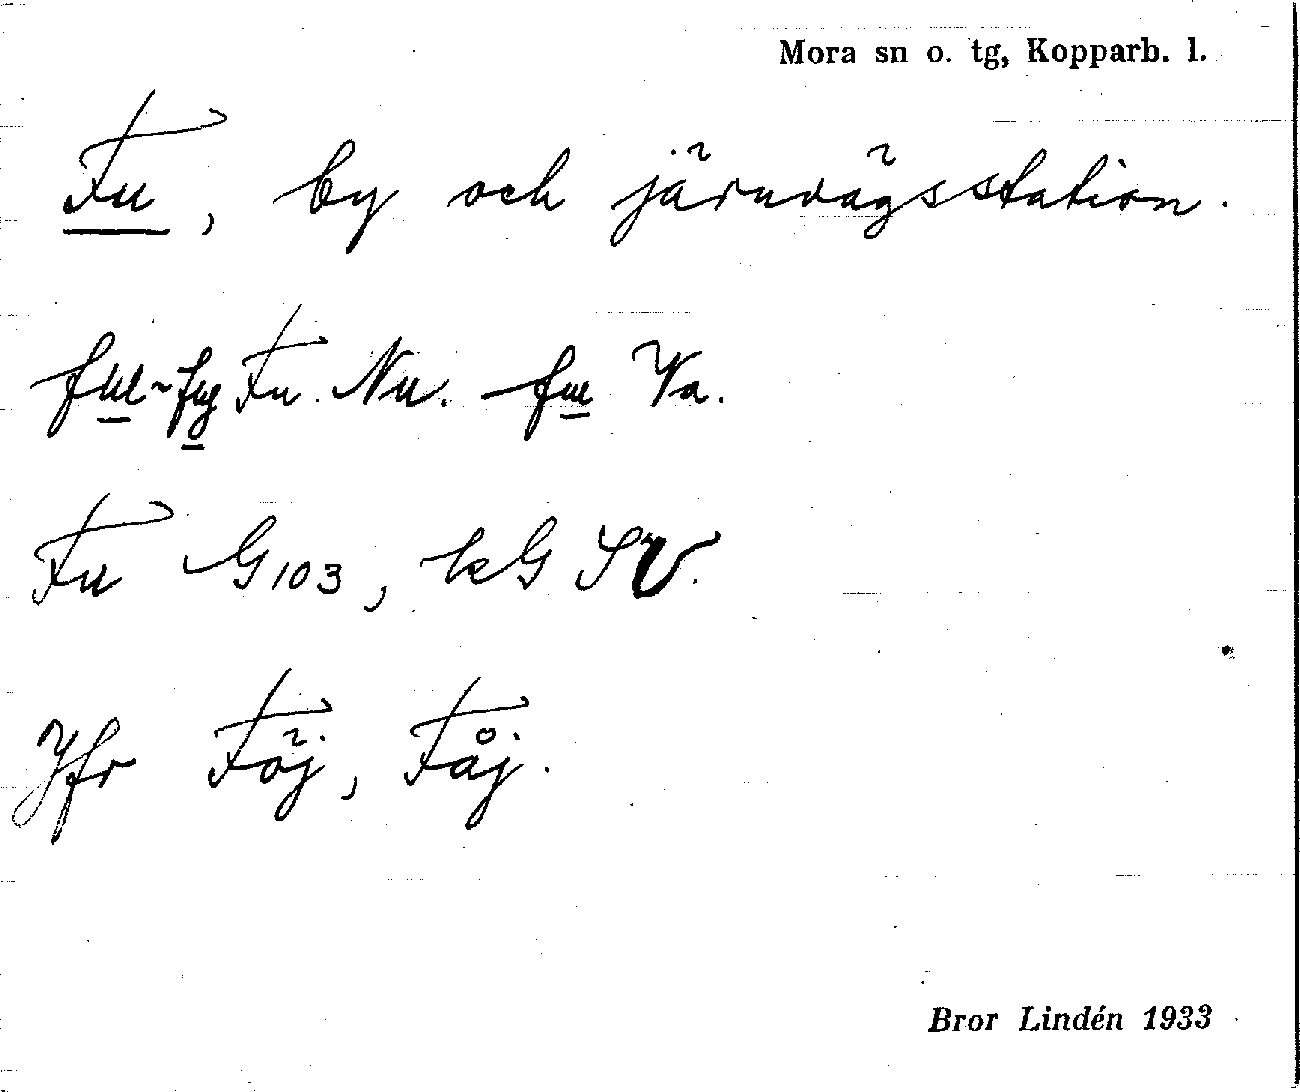 Mora sn o. tg, Kopparb. l.
Fu, by och järnvägsstation.
Fu. Nu. Va.
Fu G103, kG SV.
Jfr Föj, Fåj.
Bror Lindén 1933